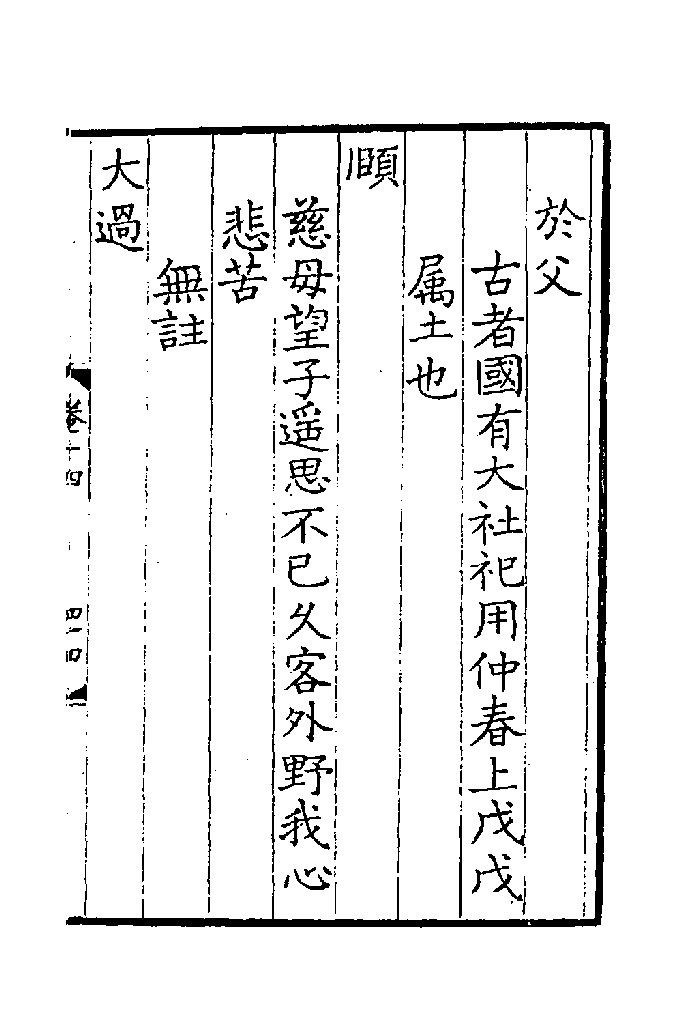 於父
古者國有大社祀用仲春上戊戊
属土也
頤
慈母望子遥思不已久客外野我心
悲苦
無註
大過
卷十四